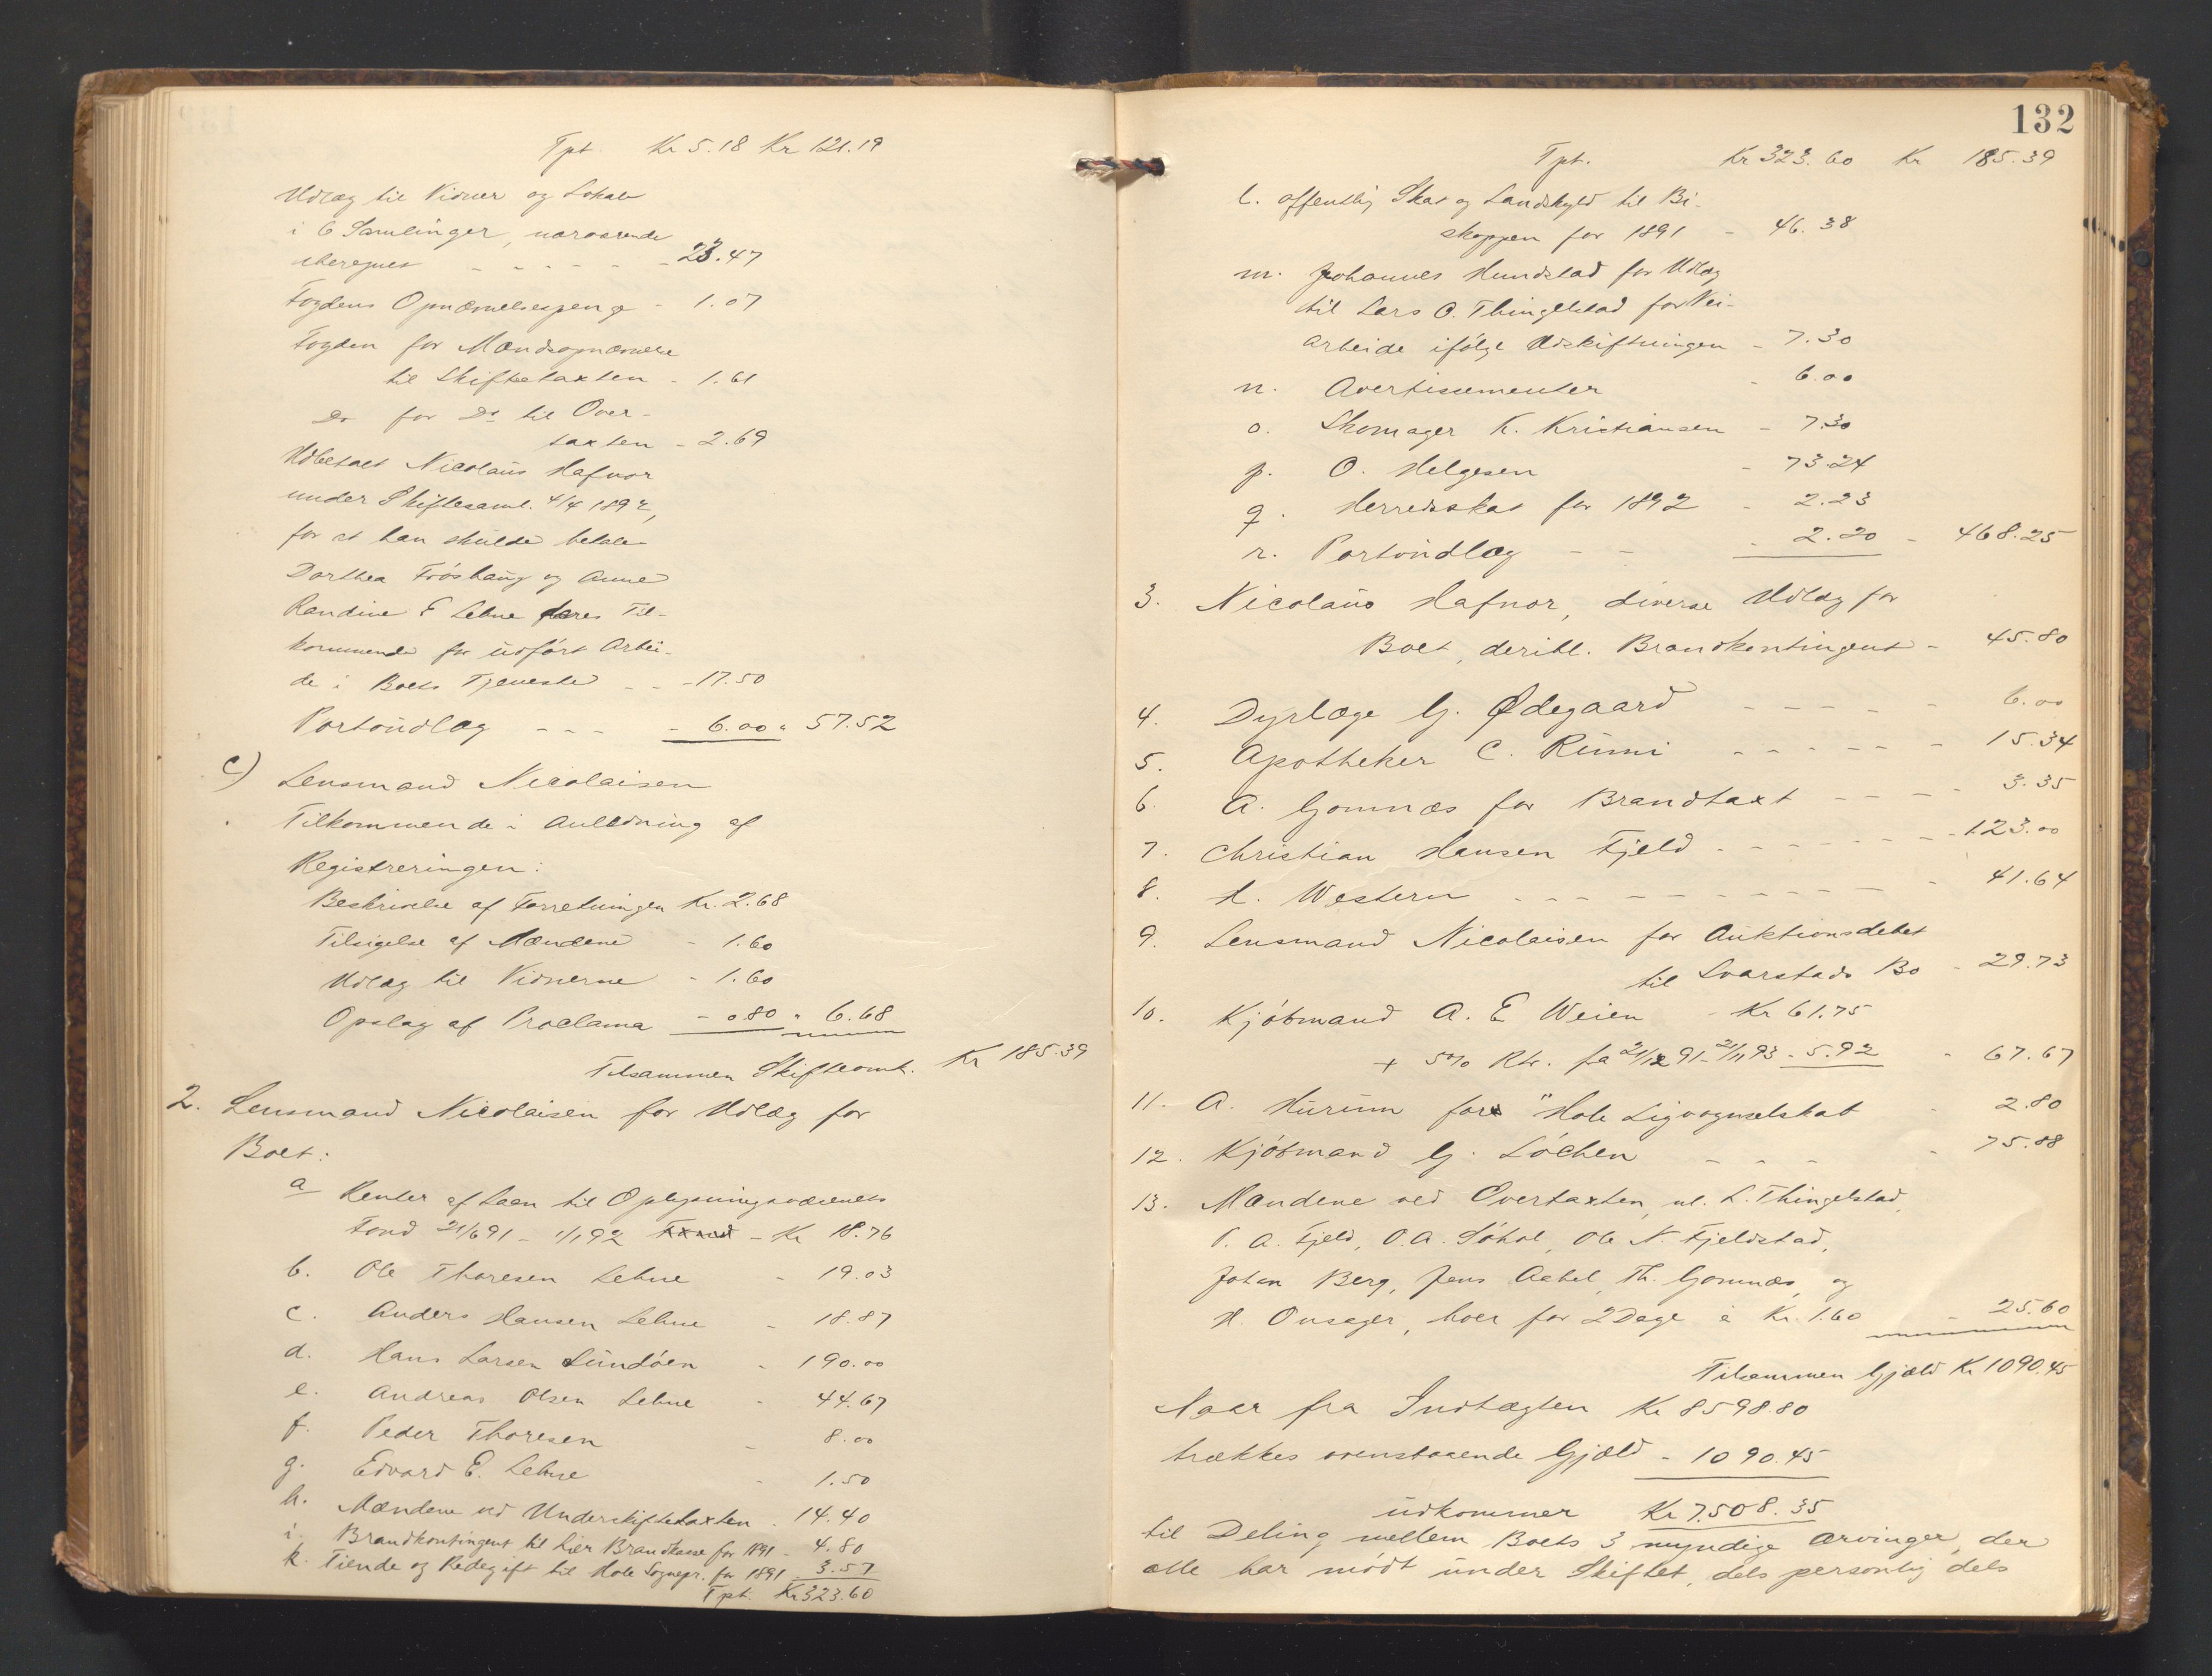 Tpt. Kr 5.18 Kr 121.19
Udlæg til Vidner og Lokale
i 6 Samlinger, nærværende
iberegnet - - - - - - 23.47
Fogdens Opnævnelsespenge - 1.07
Fogden for Mændsopnævnelse
til Skiftetaxten - 1.61
Do for Do til Over-
taxten - 2.69
Udbetalt Nicolaus Hafnor
under Skiftesaml. 4/4 1892,
for at han skulde betale
Dorthea Frøshaug og Anne
Randine E Lehne deres Til-
kommende for udført Arbei-
de i Boets Tjeneste - - - 17.50
Portoudlæg - - - - 6.00 " 57.52
c) Lensmand Nicolaisen
Tilkommende i Anledning af
Registreringen:
Beskrivelse af Forretningen Kr. 2.68
Tilsigelse af Mændene - 1.60
Udlæg til Vidnerne - 1.60
Opslag af Proclama - 0.80 " 6.68
Tilsammen Skifteomk. Kr 185.39
2. Lensmand Nicolaisen for Udlæg for
Boet:
a Renter af Laan til Oplysningsvæsenets
Fond 21/6 91 - 1/1 92 Fond - Kr 18.76
b. Ole Thoresen Lehne - 19.03
c. Anders Hansen Lehne - 18.87
d. Hans Larsen Sundøen - 190.00
e. Andreas Olsen Lehne - 44.67
f. Peder Thoresen - 8.00
g. Edvard E. Lehne - 1.50
h. Mændene ved Underskiftetaxten - 14.40
i. Brandkontingent til Lier Brandkasse for 1891 - 4.80
k. Tiende og Redegift til Hole Sognepr. for 1891 - 3.57
Tpt. Kr 323.60
132
Tpt. Kr 323.60 Kr 185.39
l. offentlig Skat og Landskyld til Bi-
skoppen for 1891 - 46.38
m. Johannes Hundstad for Udlæg
til Lars O. Thingelstad for Vei-
arbeide ifølge Udskiftningen - 7.30
n. Avertissementer - 6.00
o. Skomager K. Kristiansen - 7.30
p. O. Helgesen - 73.24
q. Herredsskat for 1892 - 2.23
r. Portoudlæg - - - 2.20 - 468.25
3. Nicolaus Hafnor, diverse Udlæg for
Boet, deribl. Brandkontingent - 45.80
4. Dyrlæge G. Ødegaard - - - - - - 6.00
5. Apotheker C. Rømmi - - - - - - 15.34
6. A. Gomnæs for Brandtaxt - - - - - 3.35
7. Christian Hansen Fjeld - - - - - - - 123.00
8. H. Western - - - - - - - - - 41.64
9. Lensmand Nicolaisen for Auktionsdebet
til Svarstads Bo - 29.73
10. Kjøbmand A. E Weien - Kr 61.75
+ 5% Rtr. fa 21/12 91 - 21/11 93 - 5.92 - 67.67
11. A. Hurum for "Hole Ligvognselskab - 2.80
12. Kjøbmand G. Løchen - - - - 75.88
13. Mændene ved Overtaxten, nl. L. Thingelstad,
P. A. Fjeld, O. A. Søhol, Ole N. Fjeldstad,
Johan Berg, Jens Aabel, Th. Gomnæs, og
H. Onsager, hver for 2 Dage à Kr. 1.60 - 25.60
Tilsammen Gjæld Kr 1090.45
Naar fra Indtægten Kr 8598.80
trækkes ovenstaaende Gjæld - 1090.45
udkommer Kr 7.508.35
til Deling mellem Boets 3 myndige Arvinger, der
alle har mødt under Skiftet, dels personlig dels